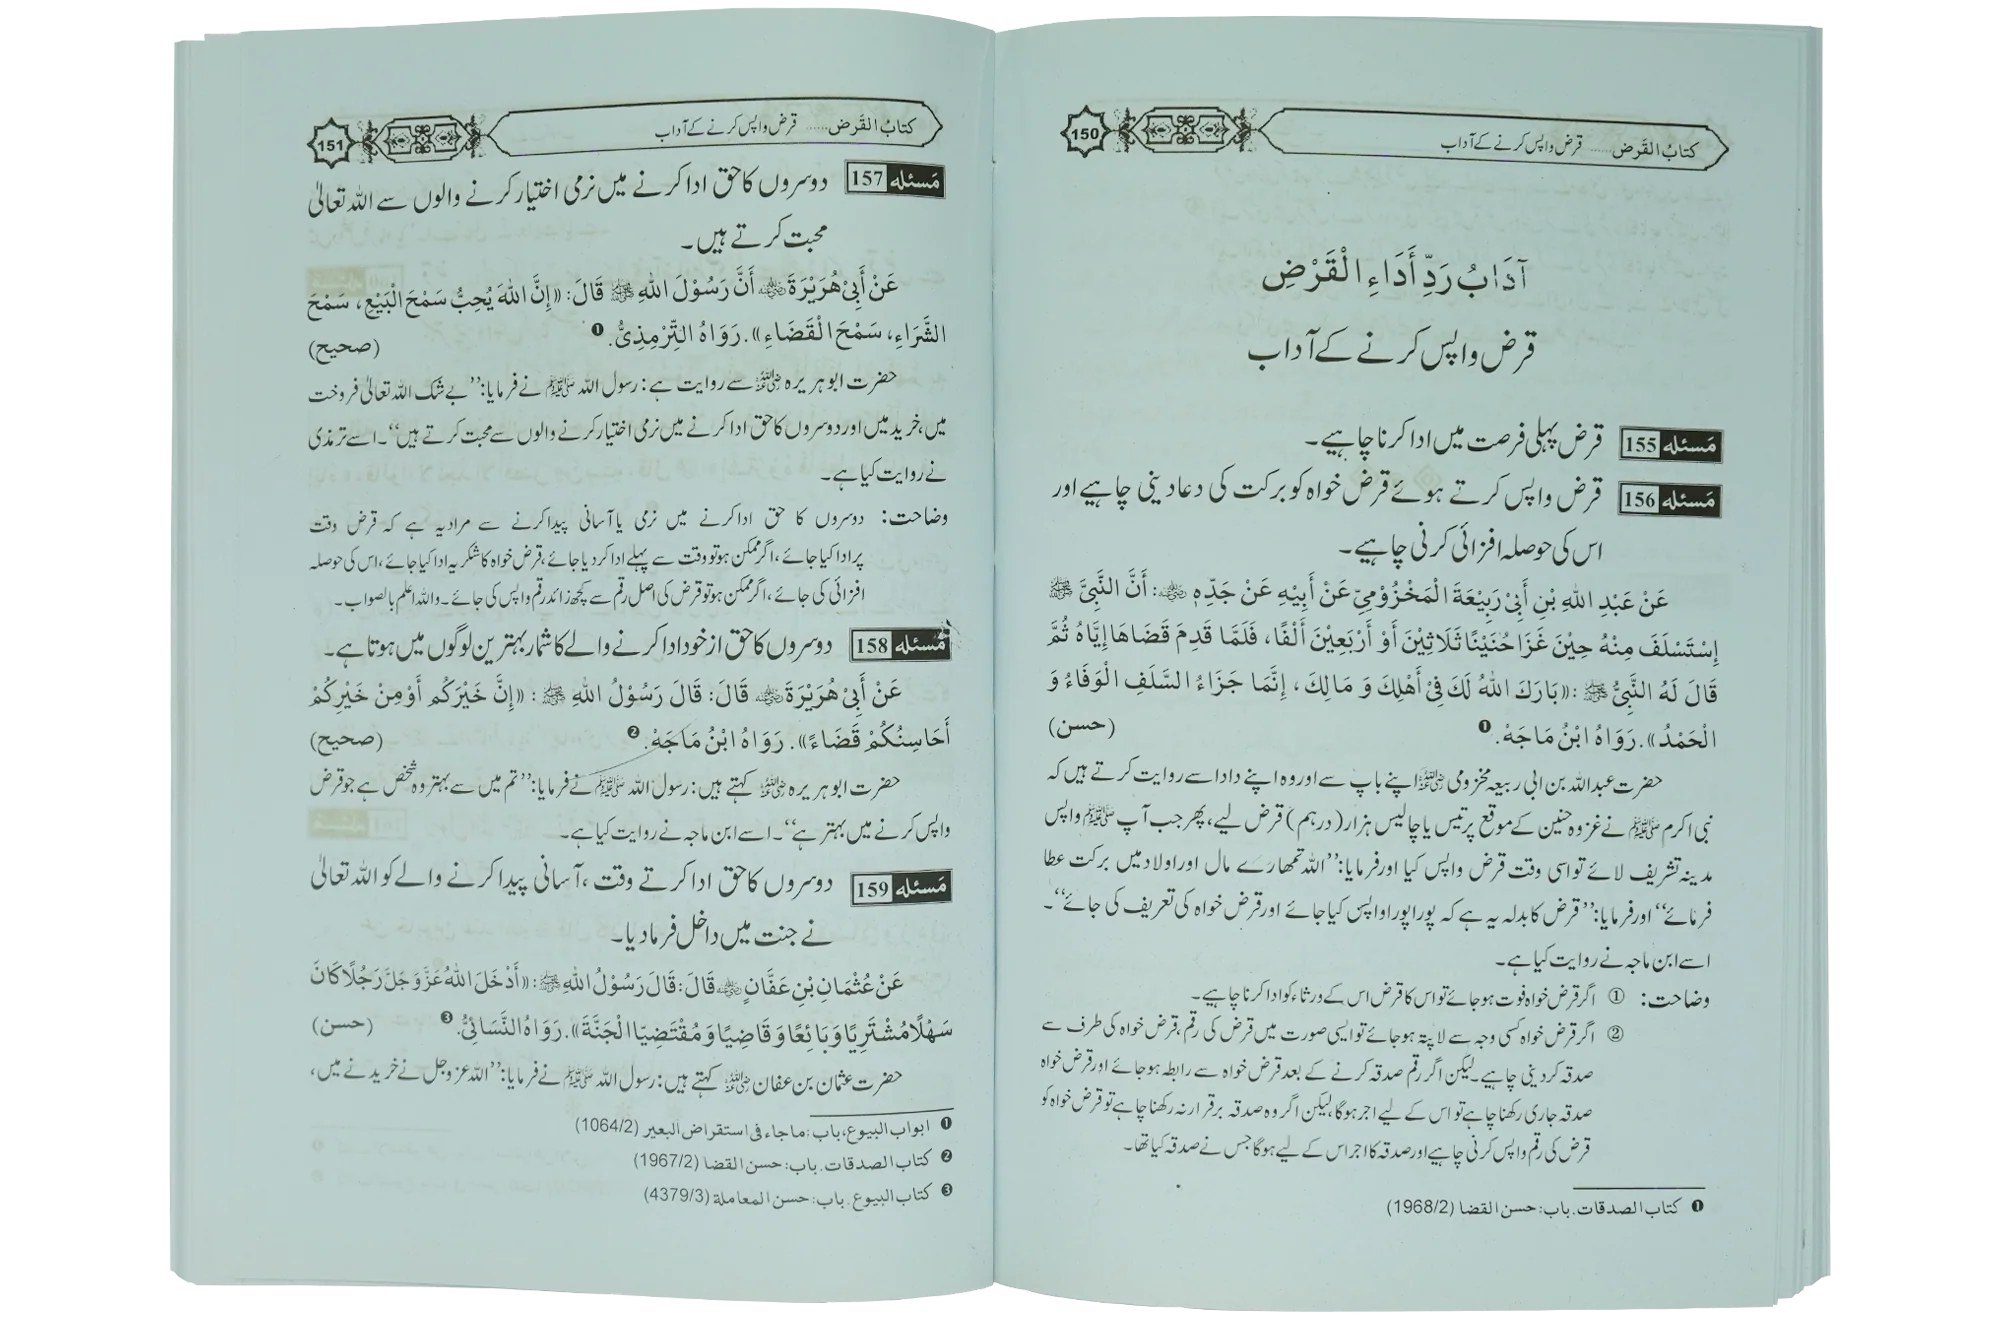 150
کتابُ القَرض ...... قرض واپس کرنے کے آداب
آدَابُ رَدِّ أَدَاءِ الْقَرْضِ
قرض واپس کرنے کے آداب
مَسئله 155 قرض پہلی فرصت میں ادا کرنا چاہیے۔
مَسئله 156 قرض واپس کرتے ہوئے قرض خواہ کو برکت کی دعا دینی چاہیے اور
اس کی حوصلہ افزائی کرنی چاہیے۔
عَنْ عَبْدِ اللهِ بْنِ أَبِيْ رَبِيْعَةَ الْمَخْزُوْمِيِّ عَنْ أَبِيْهِ عَنْ جَدِّهٖ ﷜: أَنَّ النَّبِيَّ ﷺ
إِسْتَسْلَفَ مِنْهُ حِيْنَ غَزَا حُنَيْنًا ثَلَاثِيْنَ أَوْ أَرْبَعِيْنَ أَلْفًا، فَلَمَّا قَدِمَ قَضَاهَا إِيَّاهُ ثُمَّ
قَالَ لَهُ النَّبِيُّ ﷺ: «بَارَكَ اللهُ لَكَ فِيْ أَهْلِكَ وَ مَالِكَ، إِنَّمَا جَزَاءُ السَّلَفِ الْوَفَاءُ وَ
الْحَمْدُ». رَوَاهُ ابْنُ مَاجَهْ. ❶ (حسن)
حضرت عبداللہ بن ابی ربیعہ مخزومی ﷜ اپنے باپ سے اور وہ اپنے دادا سے روایت کرتے ہیں کہ
نبی اکرم ﷺ نے غزوہ حنین کے موقع پر تیس یا چالیس ہزار (درہم) قرض لیے، پھر جب آپ ﷺ واپس
مدینہ تشریف لائے تو اسی وقت قرض واپس کیا اور فرمایا: ’’اللہ تمھارے مال اور اولاد میں برکت عطا
فرمائے‘‘ اور فرمایا: ’’قرض کا بدلہ یہ ہے کہ پورا پورا واپس کیا جائے اور قرض خواہ کی تعریف کی جائے‘‘۔
اسے ابن ماجہ نے روایت کیا ہے۔
وضاحت: ① اگر قرض خواہ فوت ہو جائے تو اس کا قرض اس کے ورثاء کو ادا کرنا چاہیے۔
② اگر قرض خواہ کسی وجہ سے لا پتہ ہو جائے تو ایسی صورت میں قرض کی رقم، قرض خواہ کی طرف سے
صدقہ کر دینی چاہیے۔ لیکن اگر رقم صدقہ کرنے کے بعد قرض خواہ سے رابطہ ہو جائے اور قرض خواہ
صدقہ جاری رکھنا چاہے تو اس کے لیے اجر ہوگا، لیکن اگر وہ صدقہ برقرار نہ رکھنا چاہے تو قرض خواہ کو
قرض کی رقم واپس کرنی چاہیے اور صدقہ کا اجر اس کے لیے ہوگا جس نے صدقہ کیا تھا۔
❶ کتاب الصدقات. باب: حسن القضا (1968/2)
151
کتابُ القَرض ...... قرض واپس کرنے کے آداب
مَسئله 157 دوسروں کا حق ادا کرنے میں نرمی اختیار کرنے والوں سے اللہ تعالیٰ
محبت کرتے ہیں۔
عَنْ أَبِيْ هُرَيْرَةَ ﷜ أَنَّ رَسُوْلَ اللهِ ﷺ قَالَ: «إِنَّ اللهَ يُحِبُّ سَمْحَ الْبَيْعِ، سَمْحَ
الشَّرَاءِ، سَمْحَ الْقَضَاءِ». رَوَاهُ التِّرْمِذِيُّ. ❶ (صحيح)
حضرت ابوہریرہ ﷜ سے روایت ہے: رسول اللہ ﷺ نے فرمایا: ’’بے شک اللہ تعالیٰ فروخت
میں، خرید میں اور دوسروں کا حق ادا کرنے میں نرمی اختیار کرنے والوں سے محبت کرتے ہیں‘‘۔ اسے ترمذی
نے روایت کیا ہے۔
وضاحت: دوسروں کا حق ادا کرنے میں نرمی یا آسانی پیدا کرنے سے مراد یہ ہے کہ قرض وقت
پر ادا کیا جائے، اگر ممکن ہو تو وقت سے پہلے ادا کر دیا جائے، قرض خواہ کا شکریہ ادا کیا جائے، اس کی حوصلہ
افزائی کی جائے، اگر ممکن ہو تو قرض کی اصل رقم سے کچھ زائد رقم واپس کی جائے۔ واللہ اعلم بالصواب۔
مَسئله 158 دوسروں کا حق از خود ادا کرنے والے کا شمار بہترین لوگوں میں ہوتا ہے۔
عَنْ أَبِيْ هُرَيْرَةَ ﷜ قَالَ: قَالَ رَسُوْلُ اللهِ ﷺ: «إِنَّ خَيْرَكُم أَوْ مِنْ خَيْرِكُمْ
أَحَاسِنُكُمْ قَضَاءً». رَوَاهُ ابْنُ مَاجَهْ. ❷ (صحيح)
حضرت ابوہریرہ ﷜ کہتے ہیں: رسول اللہ ﷺ نے فرمایا: ’’تم میں سے بہتر وہ شخص ہے جو قرض
واپس کرنے میں بہتر ہے‘‘۔ اسے ابن ماجہ نے روایت کیا ہے۔
مَسئله 159 دوسروں کا حق ادا کرتے وقت، آسانی پیدا کرنے والے کو اللہ تعالیٰ
نے جنت میں داخل فرما دیا۔
عَنْ عُثْمَانِ بْنِ عَفَّانٍ ﷜ قَالَ: قَالَ رَسُوْلُ اللهِ ﷺ: «أَدْخَلَ اللهُ عَزَّ وَ جَلَّ رَجُلًا كَانَ
سَهْلًا مُشْتَرِيًا وَ بَائِعًا وَ قَاضِيًا وَ مُقْتَضِيًا الْجَنَّةَ». رَوَاهُ النَّسَائِيُّ. ❸ (حسن)
حضرت عثمان بن عفان ﷜ کہتے ہیں: رسول اللہ ﷺ نے فرمایا: ’’اللہ عزوجل نے خریدنے میں،
❶ ابواب البیوع، باب: ماجاء فی استقراض البعیر (1064/2)
❷ کتاب الصدقات. باب: حسن القضا (1967/2)
❸ کتاب البیوع. باب: حسن المعاملة (4379/3)